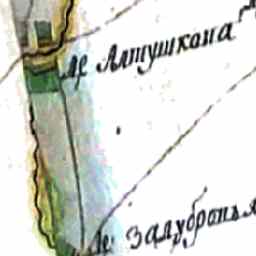 др Алтушкона
де Залубропья